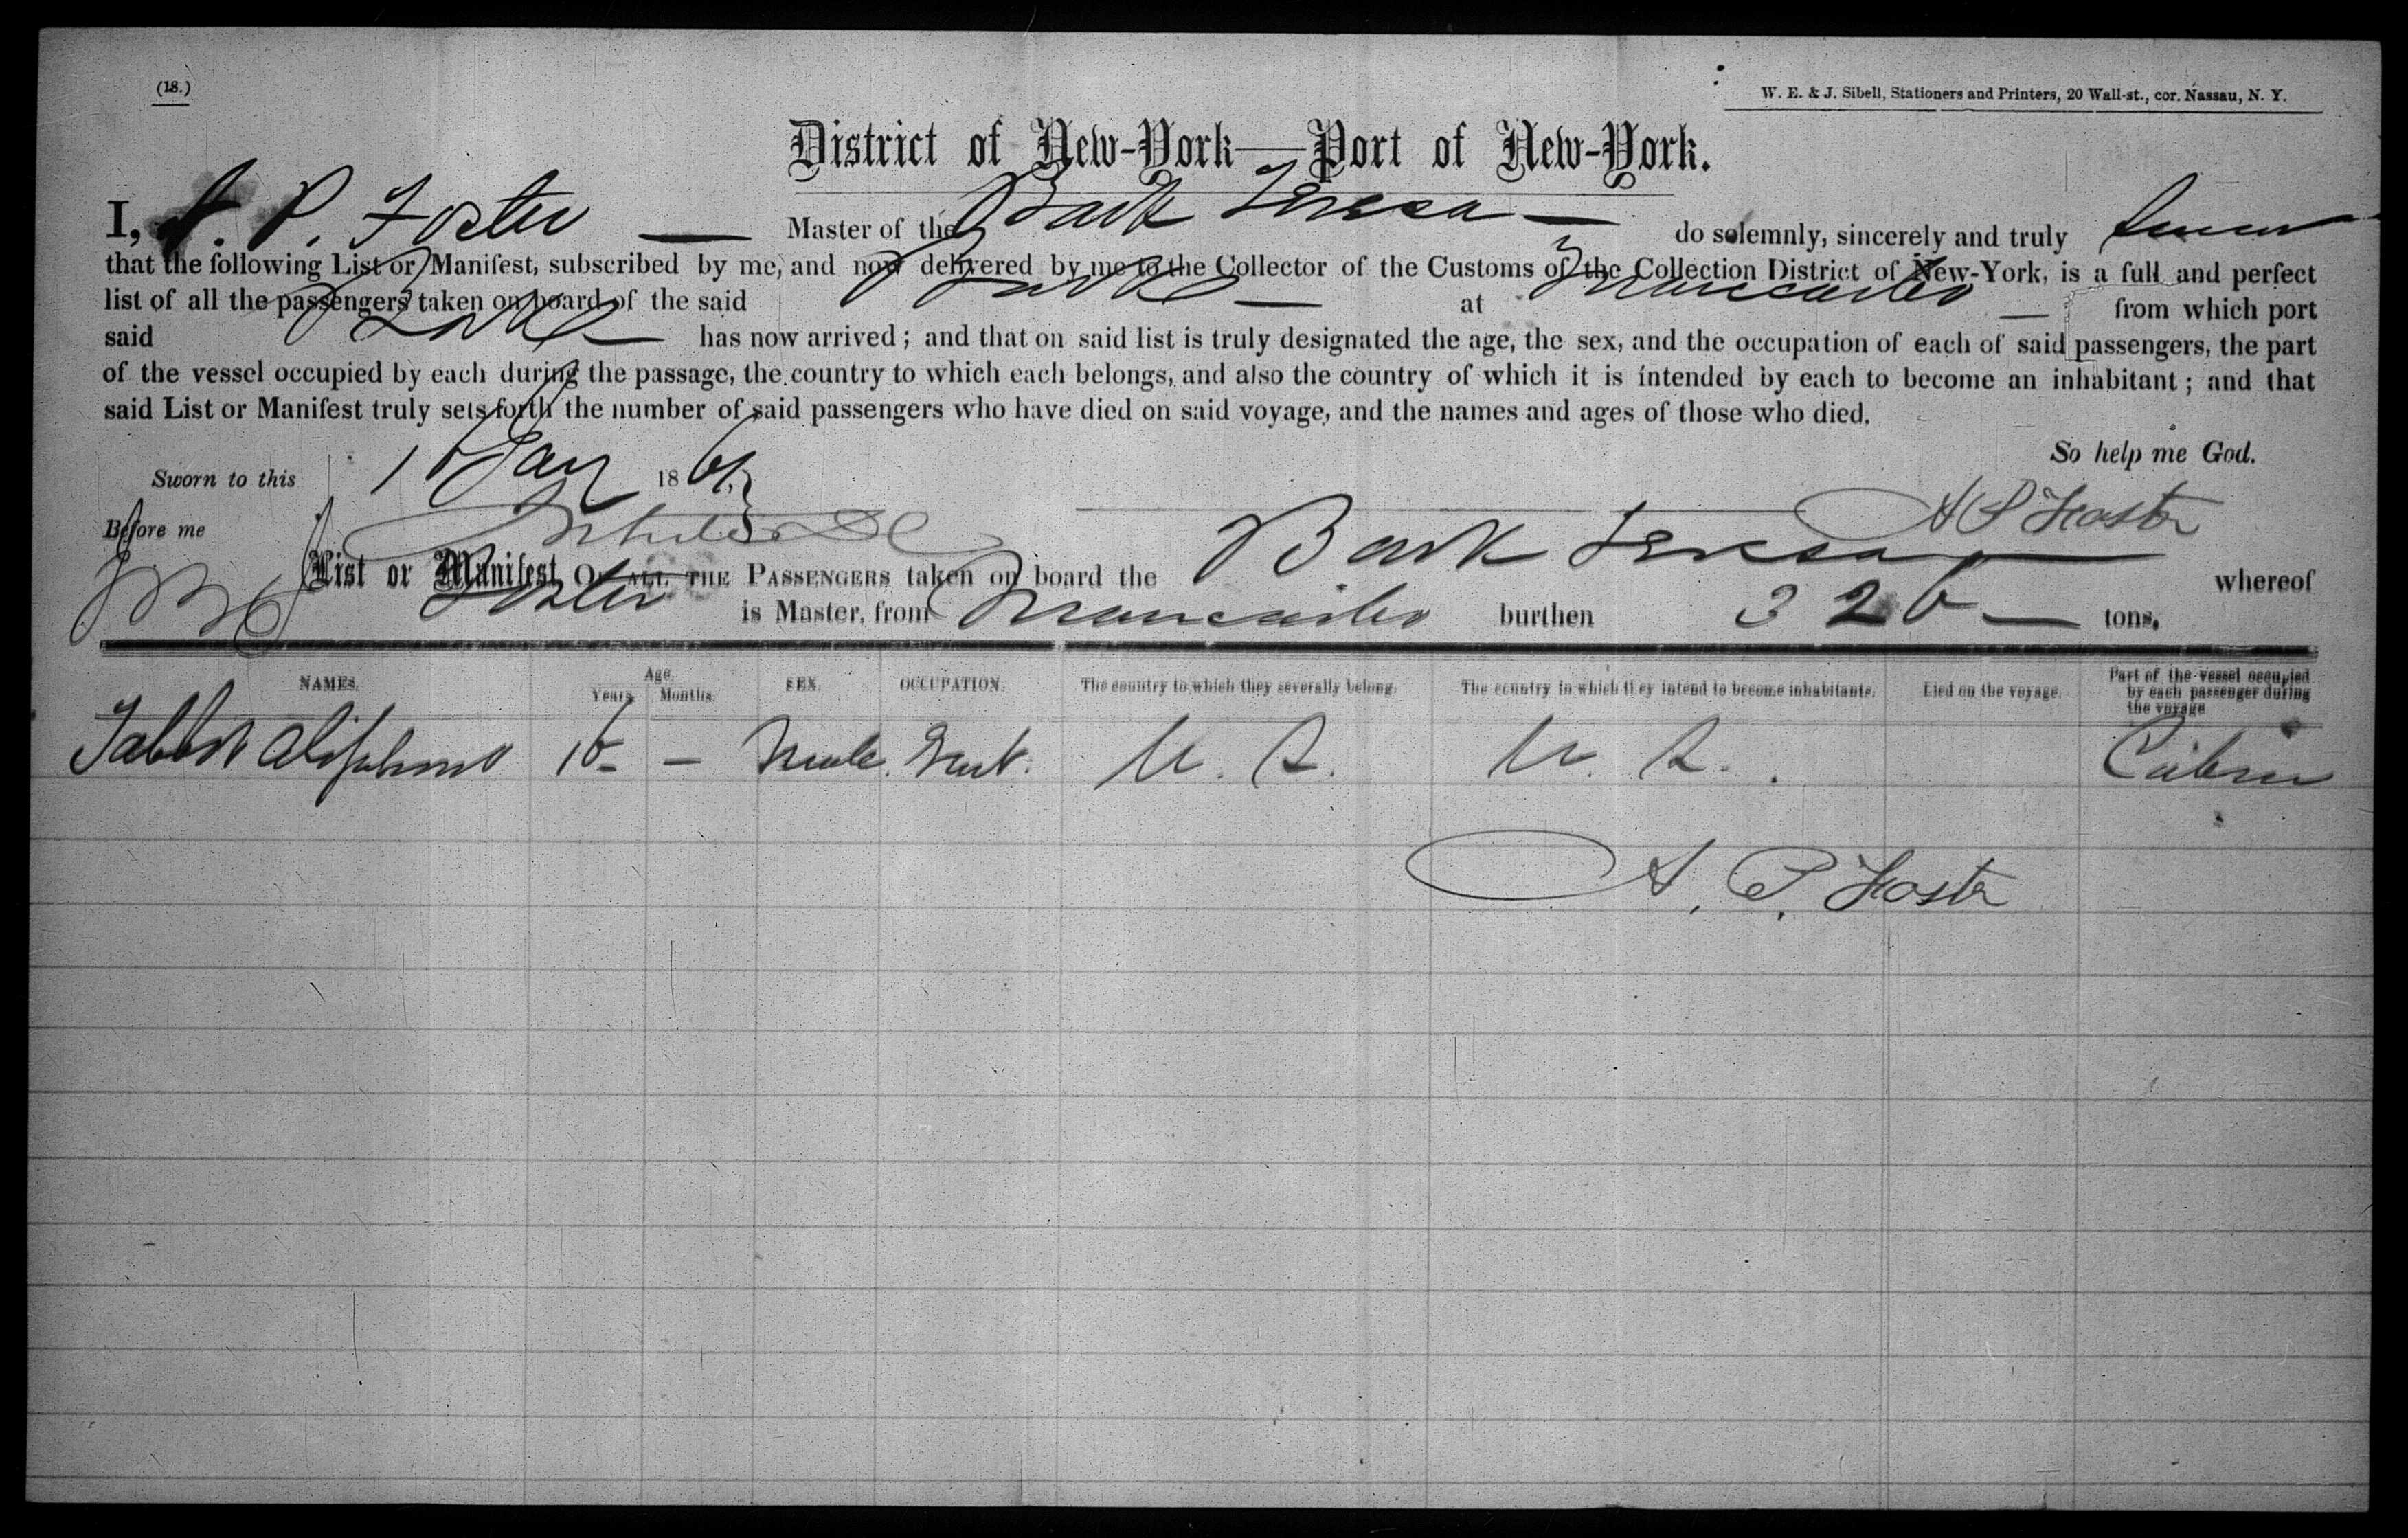 (18.)
W. E. & J. Sibell, Stationers and Printers, 20 Wall-st., cor. Nassau, N. Y.
District of New-York—Port of New-York.
I, A. P. Foster — Master of the Bark Teresa — do solemnly, sincerely and truly swear
that the following List or Manifest, subscribed by me, and now delivered by me to the Collector of the Customs of the Collection District of New-York, is a full and perfect
list of all the passengers taken on board of the said Bark — at Manzanillo — from which port
said Bark — has now arrived; and that on said list is truly designated the age, the sex, and the occupation of each of said passengers, the part
of the vessel occupied by each during the passage, the country to which each belongs, and also the country of which it is intended by each to become an inhabitant; and that
said List or Manifest truly sets forth the number of said passengers who have died on said voyage, and the names and ages of those who died.
So help me God.
Sworn to this 16 Jany 1861,
Before me
A P Foster
List or Manifest OF ALL THE PASSENGERS taken on board the Bark Teresa — whereof
Foster is Master, from Manzanillo burthen 326 — tons.
NAMES. Age. Years. Months. SEX. OCCUPATION. The country to which they severally belong. The country in which they intend to become inhabitants. Died on the voyage. Part of the vessel occupied by each passenger during the voyage
16 — Male. U. S. U. S. Cabin
A. P. Foster